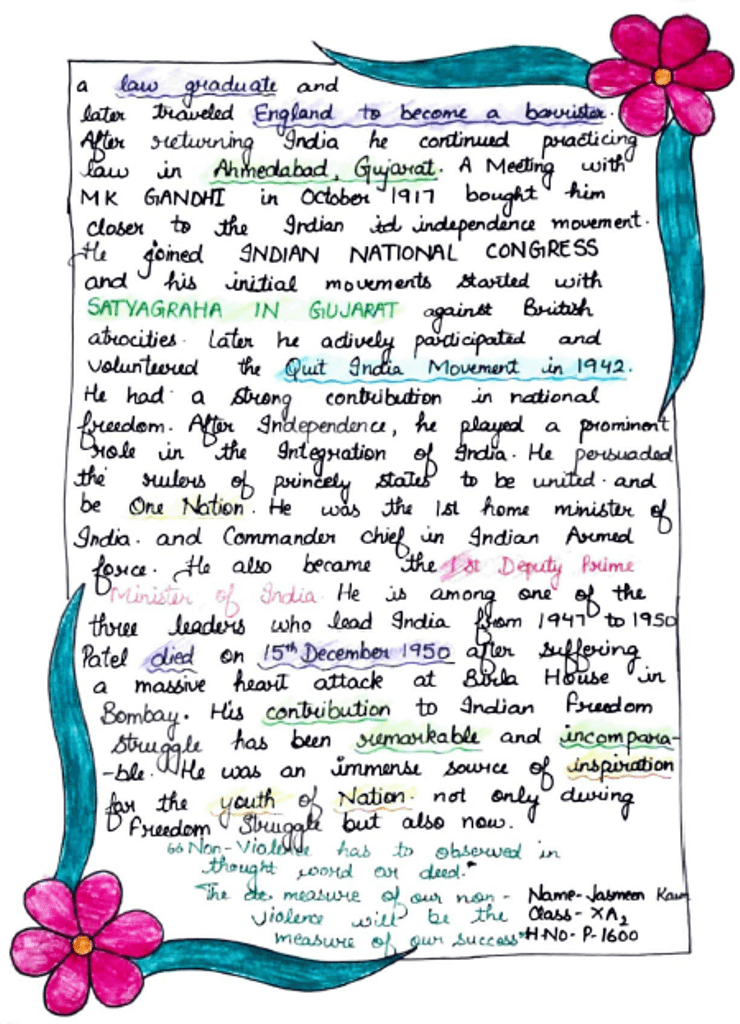 a law graduate and
later traveled England to become a barrister.
After returning India he continued practicing
law in Ahmedabad, Gujarat. A Meeting with
MK GANDHI in October 1917 bought him
closer to the Indian independence movement.
He joined INDIAN NATIONAL CONGRESS
and his initial movements started with
SATYAGRAHA IN GUJARAT against British
atrocities. Later he actively participated and
volunteered the Quit India Movement in 1942.
He had a strong contribution in national
freedom. After Independence, he played a prominent
role in the Integration of India. He persuaded
the rulers of princely states to be united. and
be One Nation. He was the 1st home minister of
India. and Commander chief in Indian Armed
force. He also became the 1st Deputy Prime
Minister of India. He is among one of the
three leaders who lead India from 1947 to 1950
Patel died on 15th December 1950 after suffering
a massive heart attack at Birla House in
Bombay. His contribution to Indian Freedom
Struggle has been remarkable and incompara-
-ble. He was an immense source of inspiration
for the youth of Nation. not only during
Freedom Struggle but also now.
"Non-Violence has to observed in
thought word or deed."
The measure of our non-
violence will be the
measure of our success"
Name- Jasmeen Kaur
Class- XA2
H.No- P-1600